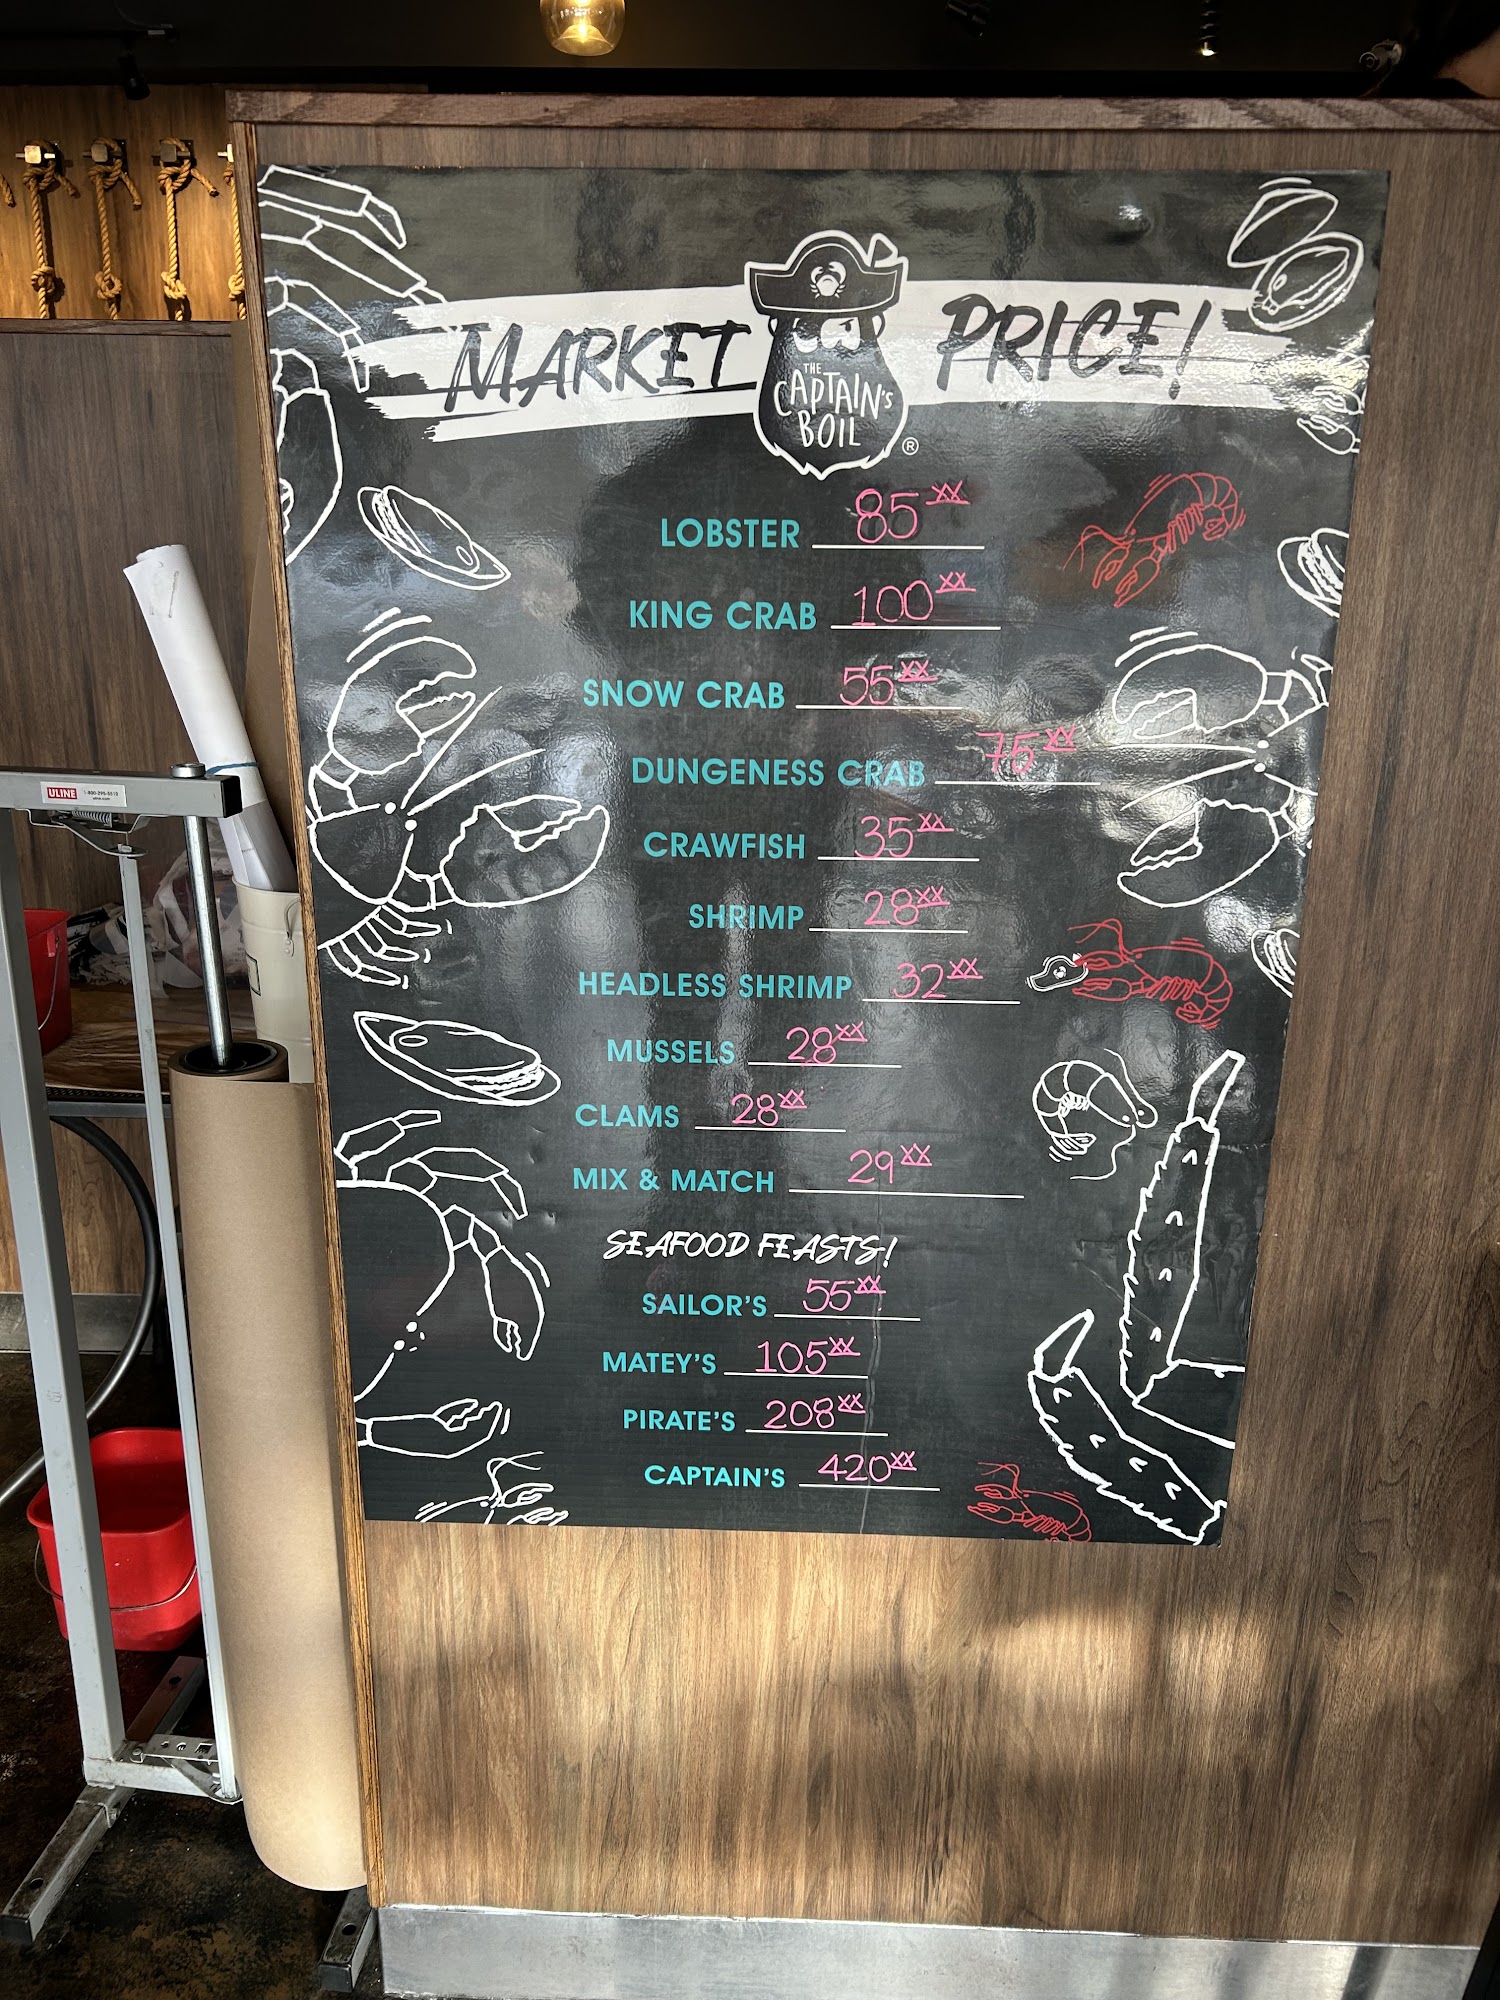 MARKET PRICE!
THE
CAPTAIN'S
BOIL
®
LOBSTER 85 xx
KING CRAB 100 xx
SNOW CRAB 55 xx
DUNGENESS CRAB 75 xx
CRAWFISH 35 xx
SHRIMP 28 xx
HEADLESS SHRIMP 32 xx
MUSSELS 28 xx
CLAMS 28 xx
MIX & MATCH 29 xx
SEAFOOD FEASTS!
SAILOR'S 55 xx
MATEY'S 105 xx
PIRATE'S 208 xx
CAPTAIN'S 420 xx
ULINE
1-800-295-5510
uline.com